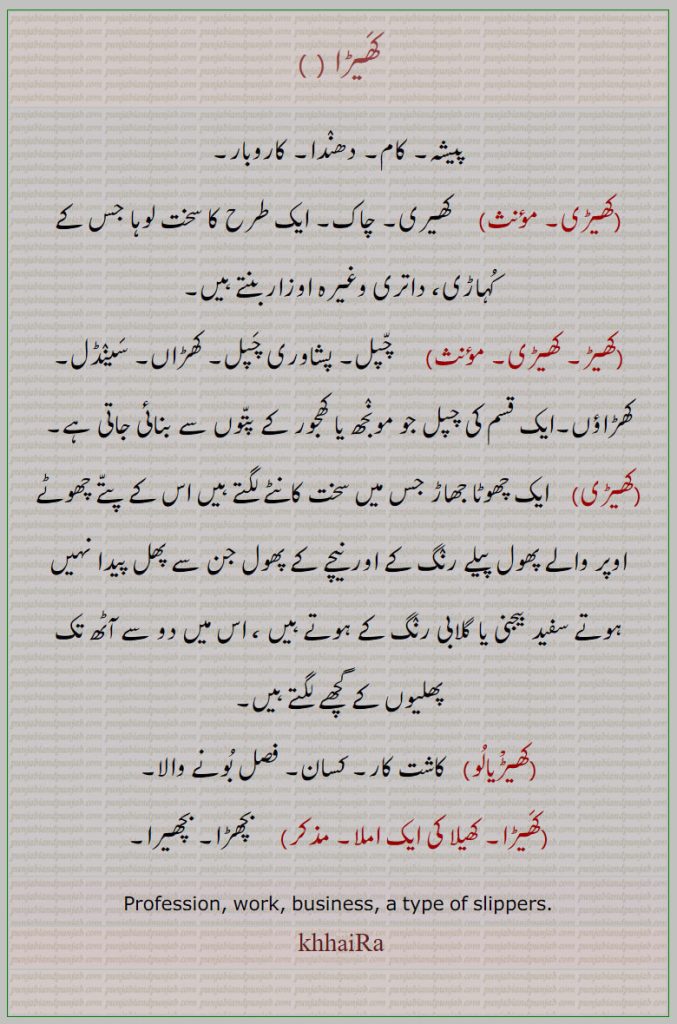 کھَیڑا ( )
پیشہ۔ کام۔ دھنْدا۔ کاروبار۔
(کھیڑی۔ مؤنث) کھیری۔ چاک۔ ایک طرح کا سخت لوہا جس کے
کُہاڑی، داتری وغیرہ اوزار بنتے ہیں۔
(کھیڑ۔ کھیڑی۔ مؤنث) چّپل۔ پشاوری چَپل۔ کھڑاں۔ سَینْڈل۔
کھڑاؤں۔ایک قسم کی چپل جو مونْجھ یا کھجور کے پتّوں سے بنائی جاتی ہے۔
(کھیڑی) ایک چھوٹا جھاڑ جس میں سخت کانٹے لگتے ہیں اس کے پتّے چھوٹے
اوپر والے پھول پیلے رنْگ کے اور نیچے کے پھول جن سے پھل پیدا نہیں
ہوتے سفید بیجنی یا گلابی رنْگ کے ہوتے ہیں ، اس میں دو سے آٹھ تک
پھلیوں کے گچھے لگتے ہیں۔
(کھیڑْیالُو) کاشت کار۔ کسان۔ فصل بُونے والا۔
(کھَیڑا۔ کھیلا کی ایک املا۔ مذکر) بچھڑا۔ بچھیرا۔
Profession, work, business, a type of slippers.
khhaiRa